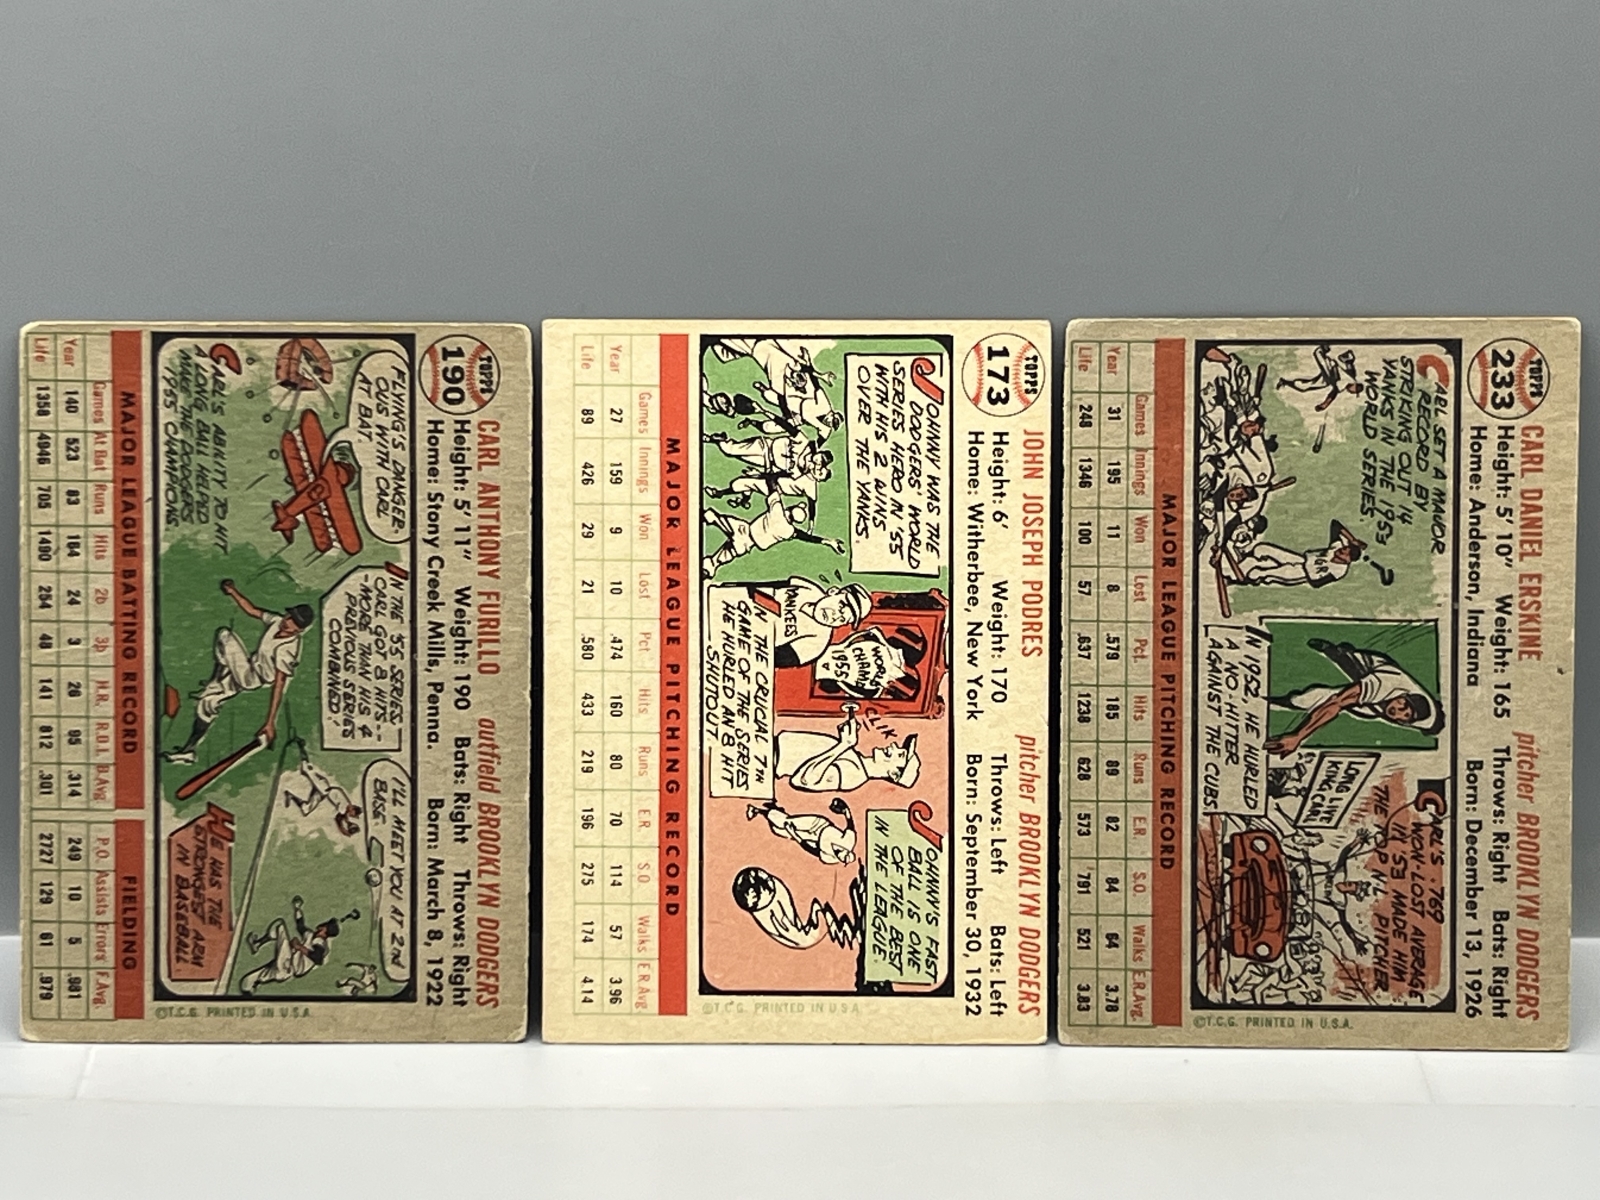 TOPPS
190
CARL ANTHONY FURILLO outfield BROOKLYN DODGERS
Height: 5' 11" Weight: 190 Bats: Right Throws: Right
Home: Stony Creek Mills, Penna. Born: March 8, 1922
FLYING'S DANGER-
OUS WITH CARL
AT BAT.
CARL'S ABILITY TO HIT
A LONG BALL HELPED
MAKE THE DODGERS
1955 CHAMPIONS.
IN THE '55 SERIES
CARL GOT 8 HITS--
--MORE THAN HIS 4
PREVIOUS SERIES
COMBINED!
I'LL MEET YOU AT 2ND
BASE
HE HAS THE
STRONGEST ARM
IN BASEBALL.
©T.C.G. PRINTED IN U.S.A.
MAJOR LEAGUE BATTING RECORD FIELDING
Games At Bat Runs Hits 2b 3b H.R. R.B.I. B.Avg. P.O. Assists Errors F.Avg.
Year 140 523 83 164 24 3 26 95 .314 249 10 5 .981
Life 1358 4946 705 1490 254 48 141 812 .301 2727 129 61 .979
TOPPS
173
JOHN JOSEPH PODRES pitcher BROOKLYN DODGERS
Height: 6' Weight: 170 Throws: Left Bats: Left
Home: Witherbee, New York Born: September 30, 1932
JOHNNY WAS THE
DODGERS' WORLD
SERIES HERO IN '55
WITH HIS 2 WINS
OVER THE YANKS.
YANKEES
WORLD
CHAMPS
1955
CLIK
IN THE CRUCIAL 7TH
GAME OF THE SERIES
HE HURLED AN 8 HIT
SHUTOUT.
JOHNNY'S FAST
BALL IS ONE
OF THE BEST
IN THE LEAGUE
©T.C.G. PRINTED IN U.S.A.
MAJOR LEAGUE PITCHING RECORD
Games Innings Won Lost Pct. Hits Runs E.R. S.O. Walks E.R.Avg.
Year 27 159 9 10 .474 160 80 70 114 57 3.96
Life 89 426 29 21 .580 433 219 196 275 174 4.14
TOPPS
233
CARL DANIEL ERSKINE pitcher BROOKLYN DODGERS
Height: 5' 10" Weight: 165 Throws: Right Bats: Right
Home: Anderson, Indiana Born: December 13, 1926
CARL SET A MAJOR
RECORD BY
STRIKING OUT 14
YANKS IN THE 1953
WORLD SERIES.
IN 1952, HE HURLED
A NO-HITTER
AGAINST THE CUBS.
LONG LIVE
KING CARL
CARL'S .769
WON-LOST AVERAGE
IN '53 MADE HIM
THE TOP N.L. PITCHER.
©T.C.G. PRINTED IN U.S.A.
MAJOR LEAGUE PITCHING RECORD
Games Innings Won Lost Pct. Hits Runs E.R. S.O. Walks E.R.Avg.
Year 31 195 11 8 .579 185 89 82 84 64 3.78
Life 248 1346 100 57 .637 1238 628 573 791 521 3.83